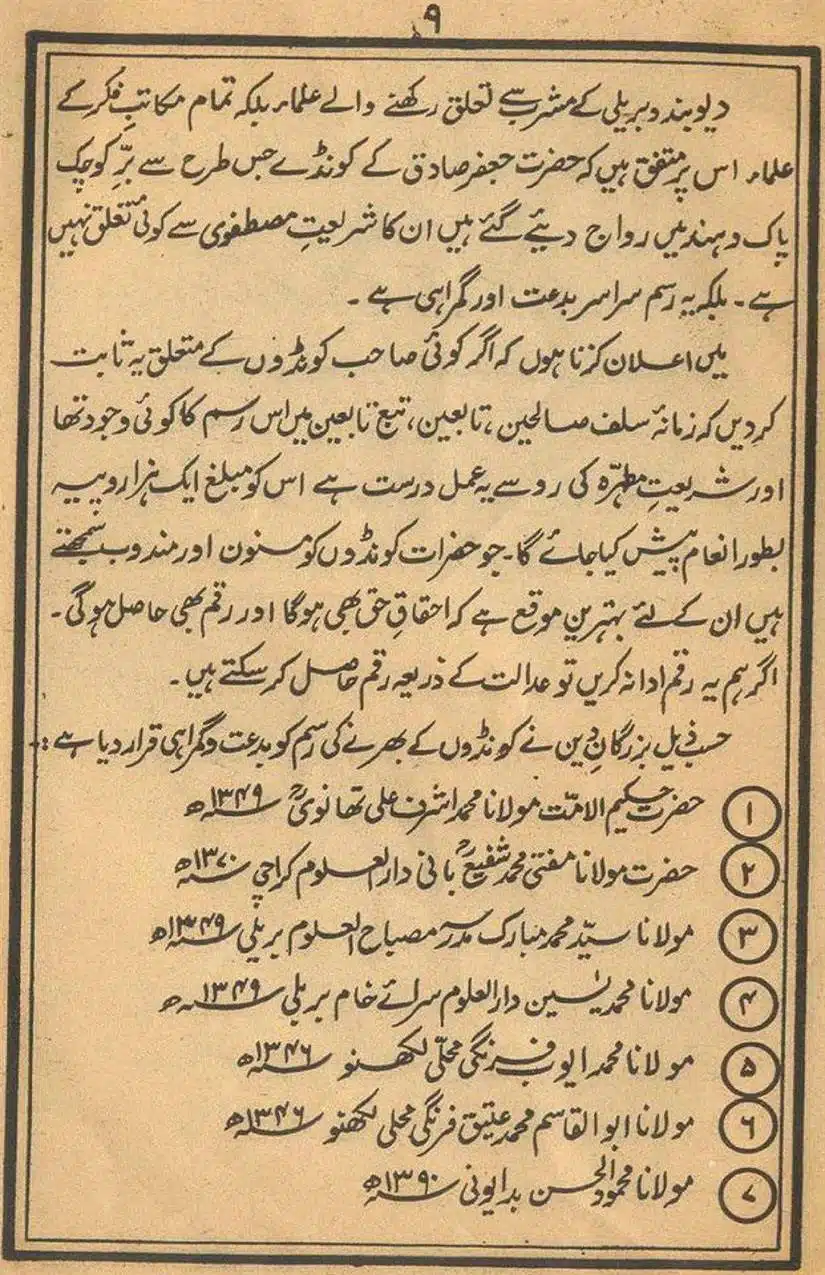 ۹
دیوبند و بریلی کے مشرب سے تعلق رکھنے والے علماء بلکہ تمام مکاتبِ فکر کے
علماء اس پر متفق ہیں کہ حضرت جعفر صادق کے کونڈے جس طرح سے برِّ کوچک
پاک و ہند میں رواج دیئے گئے ہیں ان کا شریعتِ مصطفوی سے کوئی تعلق نہیں
ہے۔ بلکہ یہ رسم سراسر بدعت اور گمراہی ہے۔
میں اعلان کرتا ہوں کہ اگر کوئی صاحب کونڈوں کے متعلق یہ ثابت
کر دیں کہ زمانۂ سلف صالحین، تابعین، تبع تابعین میں اس رسم کا کوئی وجود تھا
اور شریعتِ مطہّرہ کی رو سے یہ عمل درست ہے اس کو مبلغ ایک ہزار روپیہ
بطور انعام پیش کیا جائے گا۔ جو حضرات کونڈوں کو مسنون اور مندوب سمجھتے
ہیں ان کے لئے بہترین موقع ہے کہ احقاقِ حق بھی ہوگا اور رقم بھی حاصل ہوگی۔
اگر ہم یہ رقم ادا نہ کریں تو عدالت کے ذریعہ رقم حاصل کر سکتے ہیں۔
حسب ذیل بزرگانِ دین نے کونڈوں کے بھرنے کی رسم کو بدعت و گمراہی قرار دیا ہے :۔
۱ حضرت حکیم الامّت مولانا محمد اشرف علی تھانویؒ ۱۳۴۹ھ
۲ حضرت مولانا مفتی محمد شفیعؒ بانی دارالعلوم کراچی ۱۳۷۰ھ
۳ مولانا سیّد محمد مبارک مدرسہ مصباح العلوم بریلی ۱۳۴۹ھ
۴ مولانا محمد یٰسین دارالعلوم سرائے خام بریلی ۱۳۴۹ھ
۵ مولانا محمد ایوب فرنگی محلّی لکھنو ۱۳۴۶ھ
۶ مولانا ابو القاسم محمد عتیق فرنگی محلی لکھنو ۱۳۴۶ھ
۷ مولانا محمود الحسن بدایونی ۱۳۹۰ھ